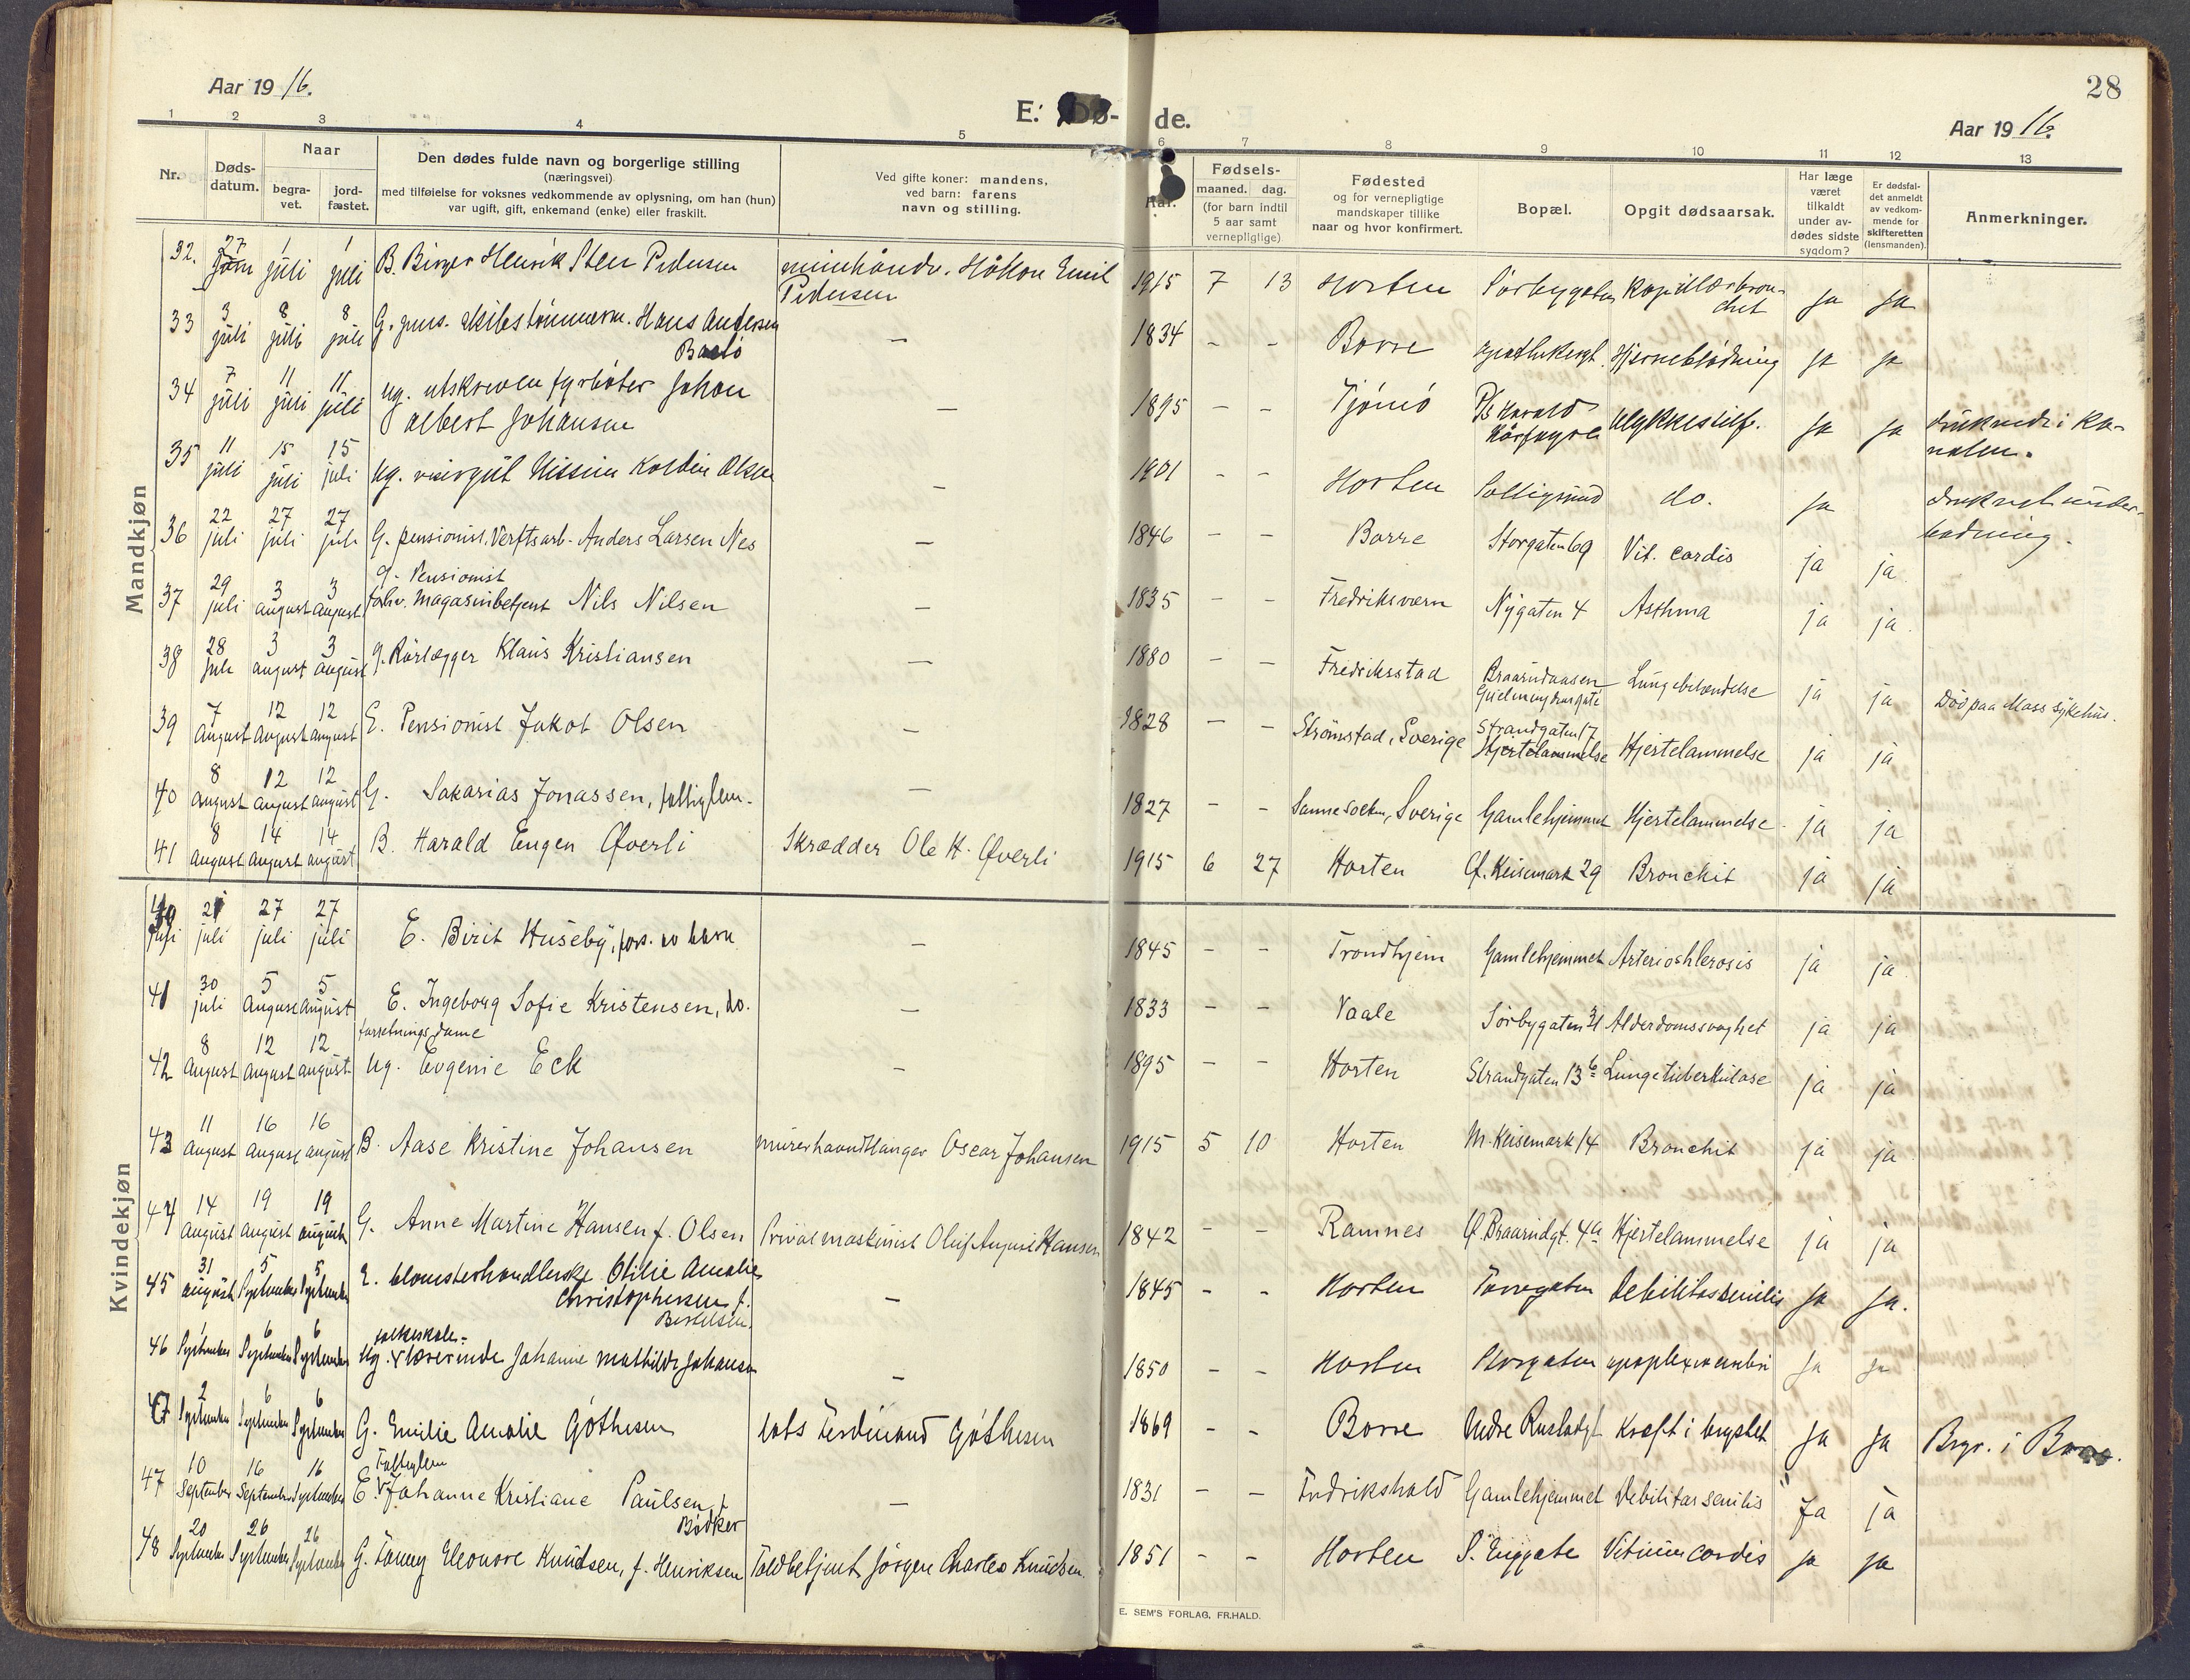 28
Aar 1916.
E. Dø- de.
Aar 1916.
1 2 3 4 5 6 7 8 9 10 11 12 13
Nr.
Døds-datum.
Naar
begra-vet.
jord-fæstet.
Den dødes fulde navn og borgerlige stilling
(næringsvei)
med tilføielse for voksnes vedkommende av oplysning, om han (hun)
var ugift, gift, enkemand (enke) eller fraskilt.
Ved gifte koner: mandens,
ved barn: farens
navn og stilling.
Fødsels-
maaned. dag.
(for barn indtil
5 aar samt
vernepligtige)
Fødested
og for vernepligtige
mandskaper tillike
naar og hvor konfirmert.
Bopæl.
Opgit dødsaarsak.
Har læge
været
tilkaldt
under av-
dødes sidste
sygdom?
Er dødsfal-
det anmeldt
av vedkom-
mende for
skifteretten
(lensmanden).
Anmerkninger.
Mandkjøn
32. 27 juni 1 juli 1 juli B. Birger Henrik Sten Pedersen Håkon Emil Pedersen 1915 7 13 Horten Sørbygaten ja ja
33 3 juli 8 juli 8 juli G. pens. skibstømmerm. Hans Andersen Bastø — 1834 - - Borre Hjerneblødning ja ja
34 7 juli 11 juli 11 juli ug. utskreven fyrbøter Johan Albert Johansen — 1895 - - Tjømø Ulykkestilf. ja ja druknede i Ka-
nalen.
35 11 juli 15 juli 15 juli ug. visergut Nissim Koldin Olsen — 1901 - - Horten do. ja druknet under
badning.
36 22 juli 27 juli 27 juli G. pensionist, Verftsarb. Anders Larsen Nes — 1846 - - Borre Storgaten 69 Vit. cordis ja ja
37 29 juli 3 august 3 august g. Pensionist forhv. Magasinbetjent Nils Nilsen — 1835 - - Fredriksværn Nygaten 4 Asthma ja ja
38 28 juli 3 august 3 august g. Rørlægger Klaus Kristiansen — 1880 - - Fredriksstad Braarudaasen Lungebetændelse ja ja Død paa Moss sykehus.
39 7 August 12 August 12 august E. Pensionist Jakob Olsen — 1828 - - Strømstad, Sverige Strandgaten 17 Hjertelammelse Hjertelammelse ja ja
40 8 August 12 August 12 august G. Sakarias Jonassen, fattiglem. — 1827 - - Sanne Soken, Sverige Gamlehjemmet Hjertelammelse ja ja
41 8 August 14 August 14 august B. Harald Eugen Øverli Skrædder Ole H. Øverli 1915 6 27 Horten Ø. Keisemark 29 Bronchit ja ja
Kvindekjøn
juli 27 juli 27 juli E. Birit Huseby, — 1845 - - Trondhjem Gamlehjemmet Arteriosklerosis ja ja
41 30 juli 5 August 5 august E. Ingeborg Sofie Kristensen, do. — 1833 - - Vaale Sørbygaten 31 Alderdomssvaghet ja ja
42 8 August 12 August 12 august forretningsdame ug. Evgenie Eck — 1895 - - Horten Strandgaten 13 b Lungetuberkulose ja ja
43 11 August 16 August 16 august B. Aase Kristine Johansen murerhaandtlanger Oscar Johansen 1915 5 10 Horten M. Keisemark 14 Bronchit ja ja
44 14 August 19 August 19 august G. Anne Martine Hansen f. Olsen Privat maskinist Oluf August Hansen 1842 - - Ramnes Ø. Braarudgt. 4a Hjertelammelse ja ja
45 31 august 5 September 5 September E. blomsterhandlerske Otilie Amalie Christophersen f. Bertelsen. — 1845 - - Horten Torvegaten Debilitas senilis ja ja.
46 1 September 6 September 6 September ug. folkeskole- lærerinde Johanne Mathilde Johansen — 1850 - - Horten Storgaten apoplexia cerebri ja ja
47 2 September 6 September 6 September G. Emilie Amalie Gøthesen Lods Ferdinand Gøthesen 1869 - - Borre Kræft i brystet ja ja Begr. i Borre.
47 10 September 16 September 16 September E. Fattiglem Johanne Kristiane Paulsen f. Bødker — 1831 - - Fredrikshald Gamlehjemmet Debilitas senilis Ja ja
48 20 September 26 September 26 September G. Fanny Eleonore Knudsen, f. Henriksen Toldbetjent Jørgen Charles Knudsen. 1851 - - Horten S. Enggate Vitium cordis ja ja
E. SEM'S FORLAG, FR.HALD.